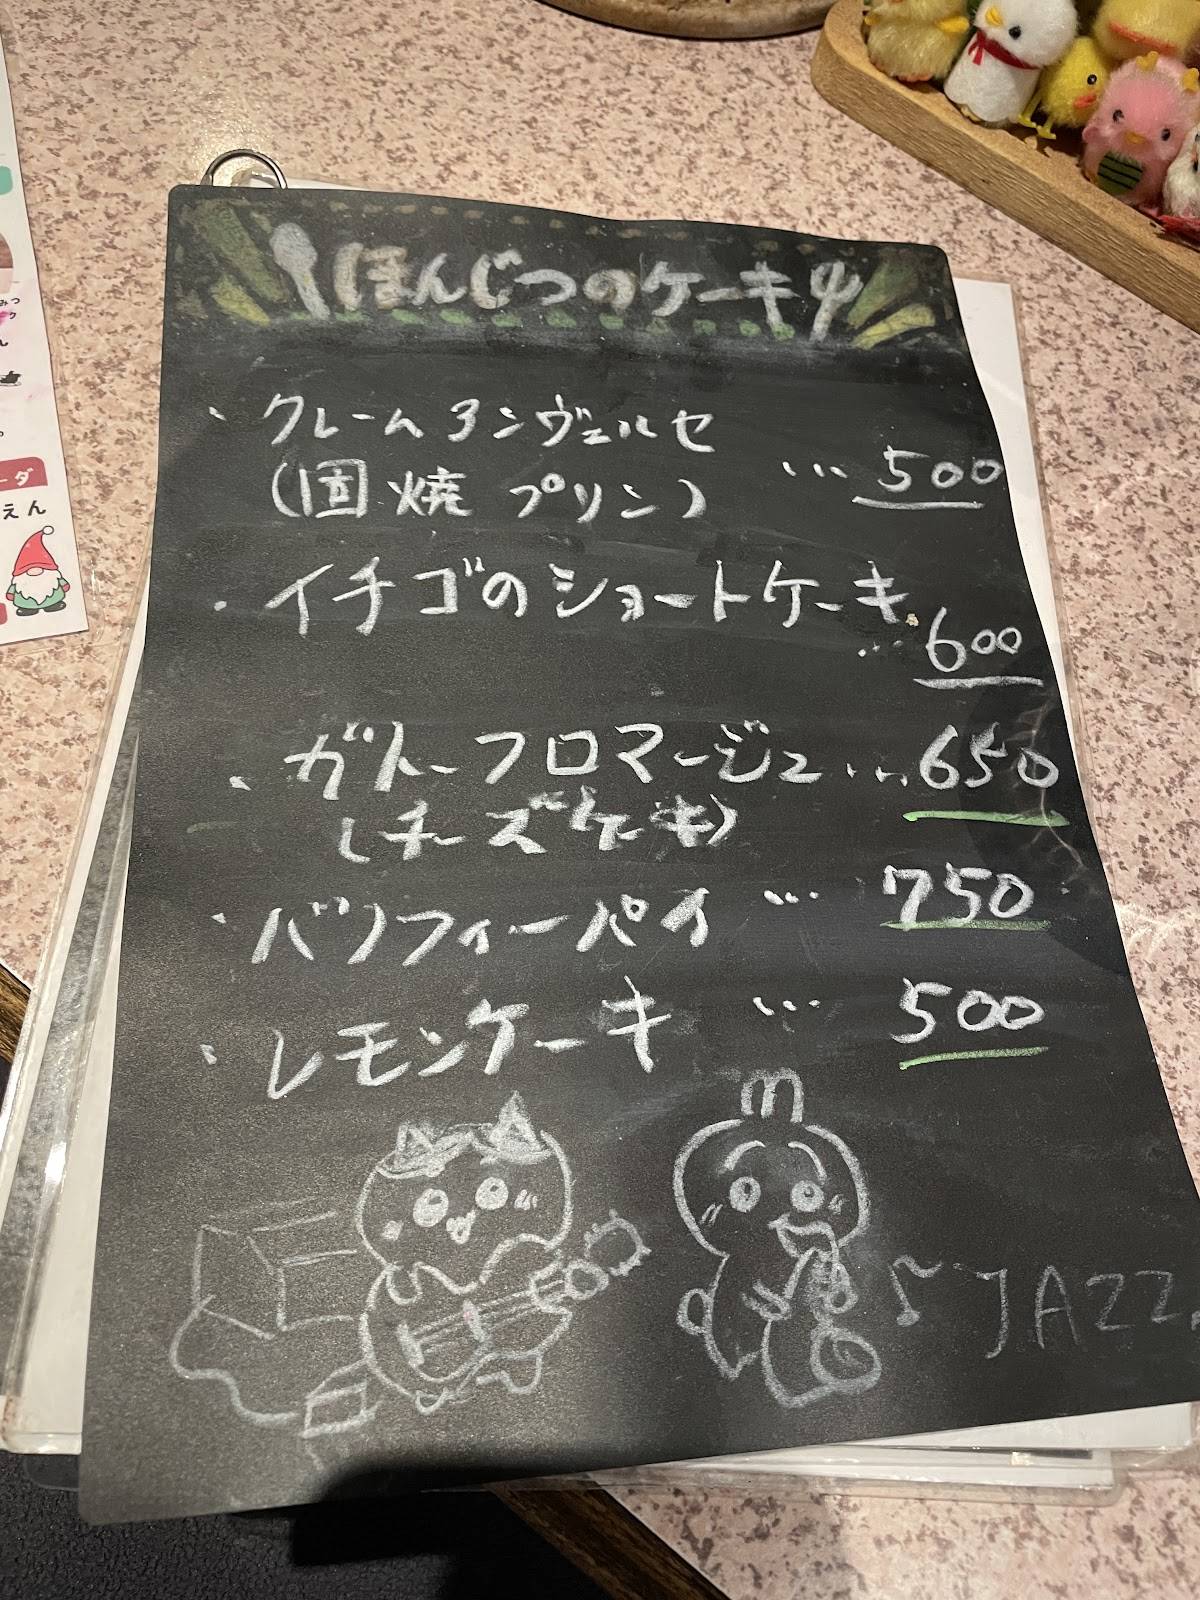 ほんじつのケーキ
・クレームランヴェルセ
(固焼プリン) … 500
・イチゴのショートケーキ
… 600
・ガトーフロマージュ … 650
(チーズケーキ)
・バノフィーパイ … 750
・レモンケーキ … 500
♪JAZZ
えん